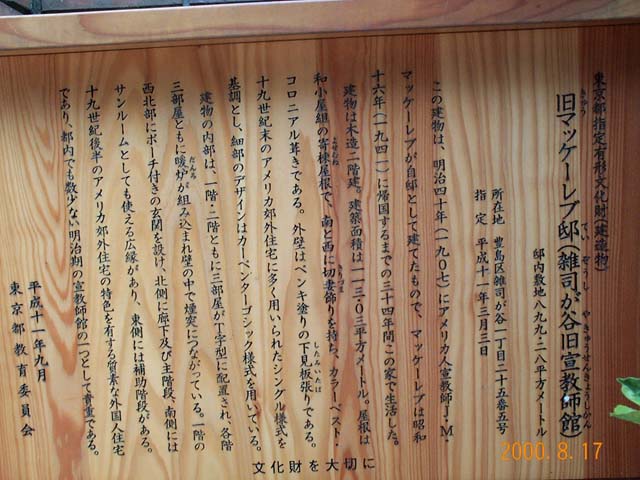 東京都指定有形文化財(建造物)
旧マッケーレブ邸(雑司が谷旧宣教師館)
邸内敷地八九九・二八平方メートル
所在地　豊島区雑司が谷一丁目二十五番五号
指　定　平成十一年三月三日
この建物は、明治四十年(一九〇七)にアメリカ人宣教師J・M・
マッケーレブが自邸として建てたもので、マッケーレブは昭和
十六年(一九四一)に帰国するまでの三十四年間この家で生活した。
建物は木造二階建。建築面積は一一三・〇三平方メートル。屋根は
和小屋組の寄棟屋根で、南と西に切妻飾りを持ち、カラーベスト・
コロニアル葺きである。外壁はペンキ塗りの下見板張りである。
十九世紀末のアメリカ郊外住宅に多く用いられたシングル様式を
基調とし、細部のデザインはカーペンターゴシック様式を用いている。
建物の内部は、一階・二階ともに三部屋がT字型に配置され、各階
三部屋ともに暖炉が組み込まれ壁の中で煙突につながっている。一階の
西北部にポーチ付きの玄関を設け、北側に廊下及び主階段、南側には
サンルームとしても使える広縁があり、東側には補助階段がある。
十九世紀後半のアメリカ郊外住宅の特色を有する質素な外国人住宅
であり、都内でも数少ない明治期の宣教師館の一つとして貴重である。
平成十一年九月
東京都教育委員会
文化財を大切に
2000.8.17